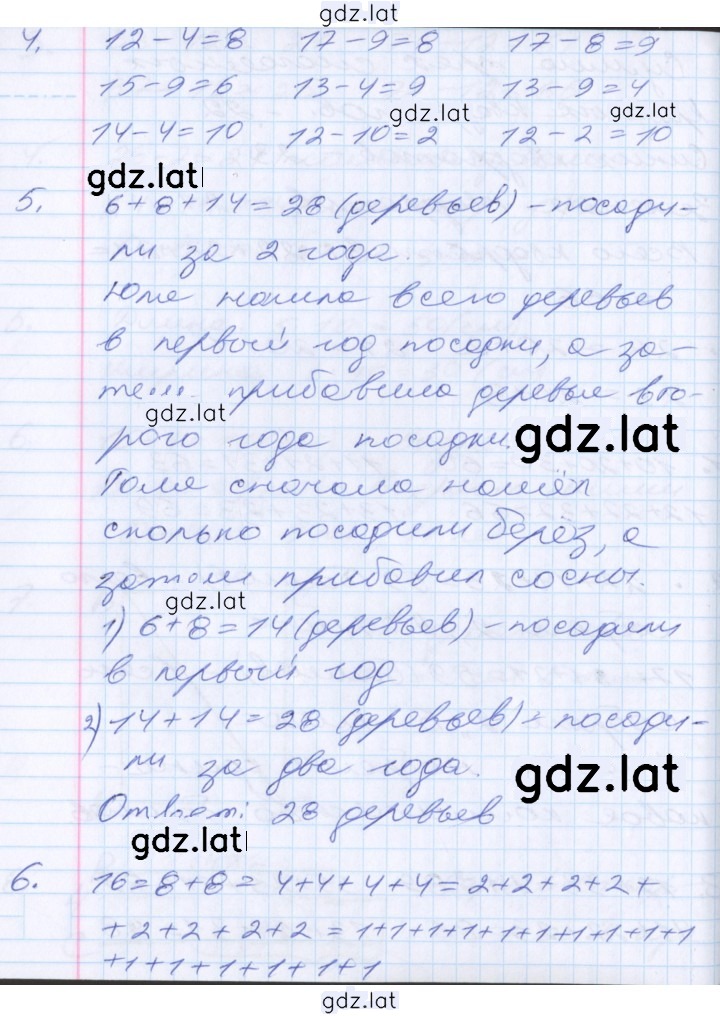 gdz.lat
4. 12-4=8 17-9=8 17-8=9
15-9=6 13-4=9 13-9=4
gdz.lat gdz.lat
14-4=10 12-10=2 12-2=10
gdz.lat
5. 6+8+14=28 (деревьев) - посади-
ли за 2 года.
Юля нашла всего деревьев
в первый год посадки, а за-
тем прибавила деревья вто-
gdz.lat
рого года посадки.
gdz.lat
Толя сначала нашёл
сколько посадили берёз, а
затем прибавил сосны.
gdz.lat
1) 6+8=14 (деревьев) - посадили
в первый год
2) 14+14=28 (деревьев) - посади-
ли за два года.
gdz.lat
Ответ: 28 деревьев
gdz.lat
6. 16=8+8=4+4+4+4=2+2+2+2+
+2+2+2+2=1+1+1+1+1+1+1+1+1+1
+1+1+1+1+1+1
gdz.lat